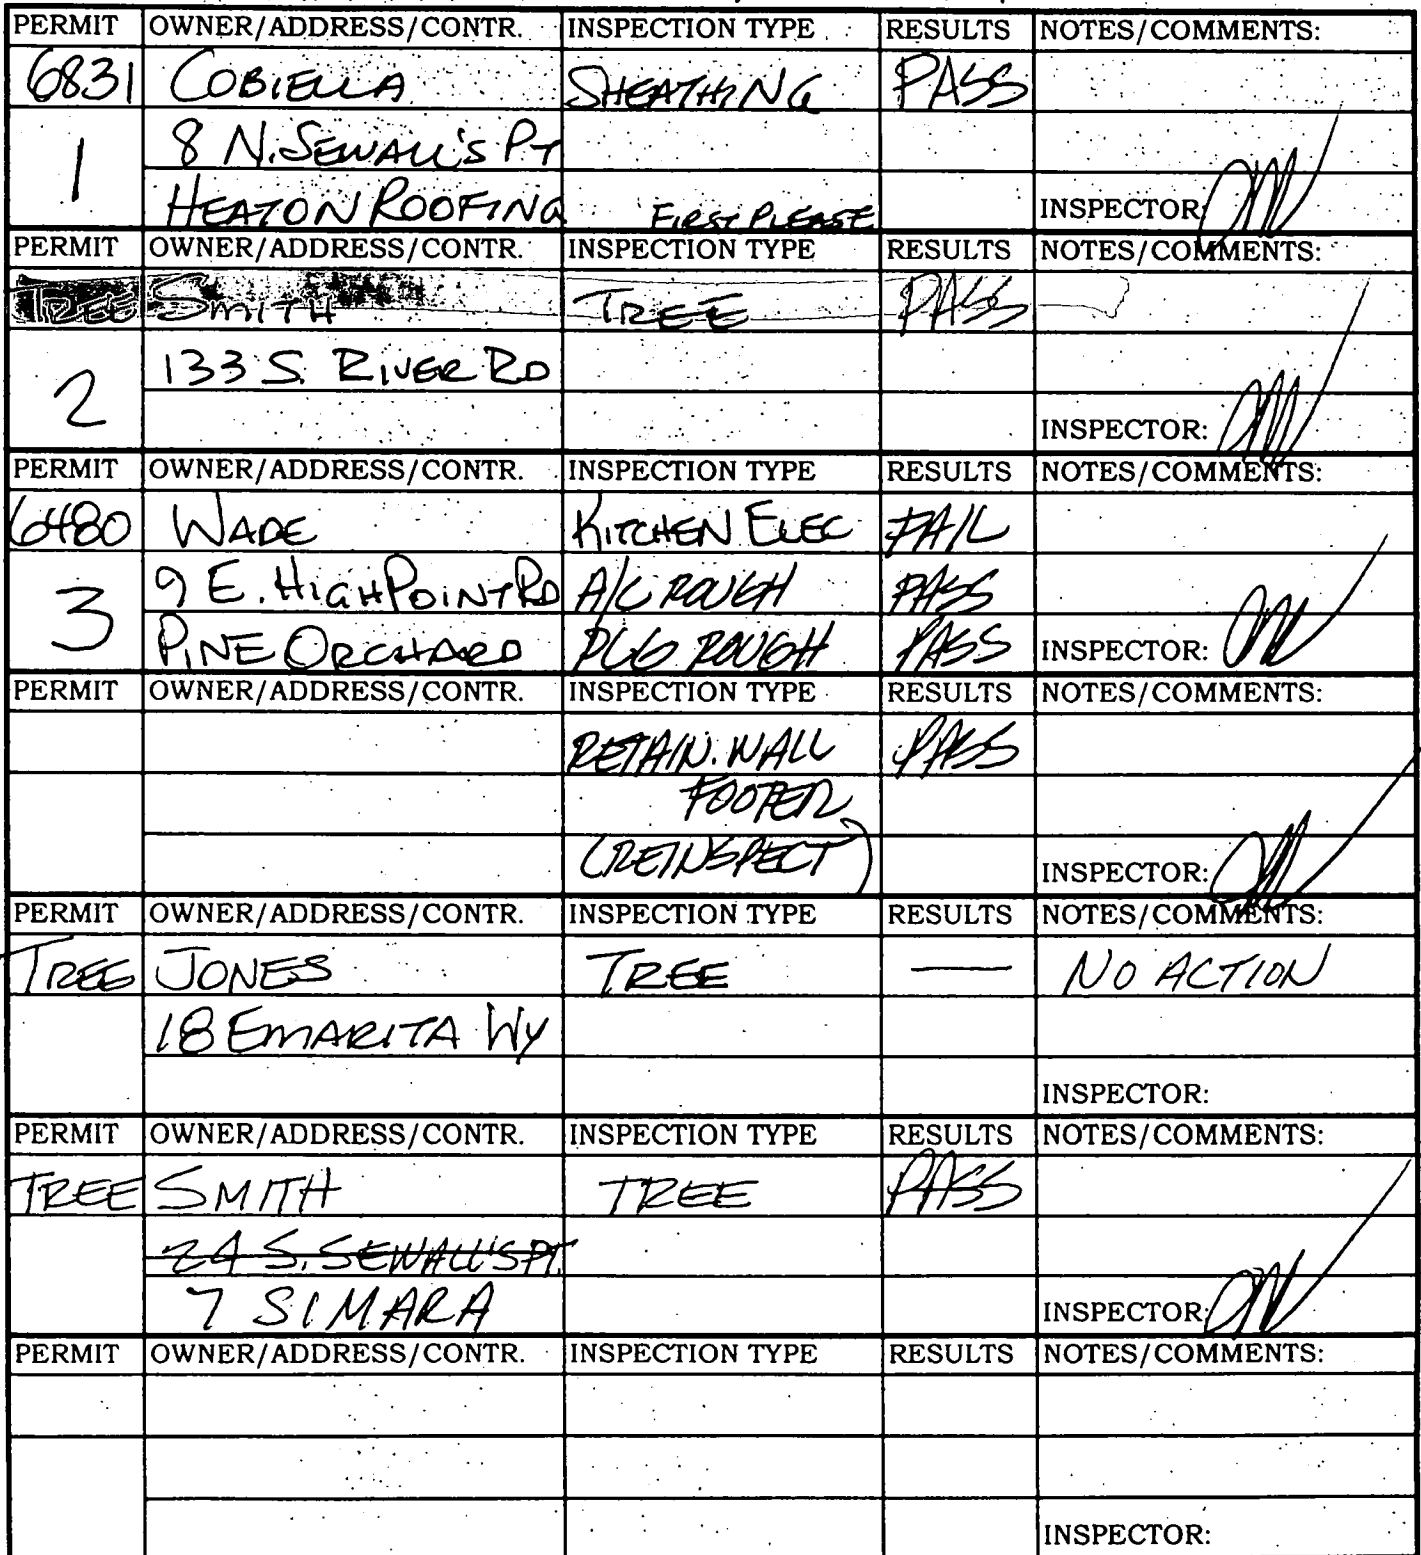 PERMIT OWNER/ADDRESS/CONTR. INSPECTION TYPE RESULTS NOTES/COMMENTS:
6831 COBIELLA SHEATHING PASS
1 8 N. SEWALL'S PT
HEATON ROOFING FIRST PLEASE INSPECTOR:
PERMIT OWNER/ADDRESS/CONTR. INSPECTION TYPE RESULTS NOTES/COMMENTS:
TREE SMITH TREE PASS
2 133 S. RIVER RD
INSPECTOR:
PERMIT OWNER/ADDRESS/CONTR. INSPECTION TYPE RESULTS NOTES/COMMENTS:
6480 WADE KITCHEN ELEC FAIL
3 9 E. HIGH POINT RD A/C ROUGH PASS
PINE ORCHARD PLG ROUGH PASS INSPECTOR:
PERMIT OWNER/ADDRESS/CONTR. INSPECTION TYPE RESULTS NOTES/COMMENTS:
RETAIN. WALL PASS
FOOTER
(REINSPECT) INSPECTOR:
PERMIT OWNER/ADDRESS/CONTR. INSPECTION TYPE RESULTS NOTES/COMMENTS:
TREE JONES TREE — NO ACTION
18 EMARITA WY
INSPECTOR:
PERMIT OWNER/ADDRESS/CONTR. INSPECTION TYPE RESULTS NOTES/COMMENTS:
TREE SMITH TREE PASS
24 S. SEWALL'S PT.
7 SIMARA INSPECTOR:
PERMIT OWNER/ADDRESS/CONTR. INSPECTION TYPE RESULTS NOTES/COMMENTS:
INSPECTOR: